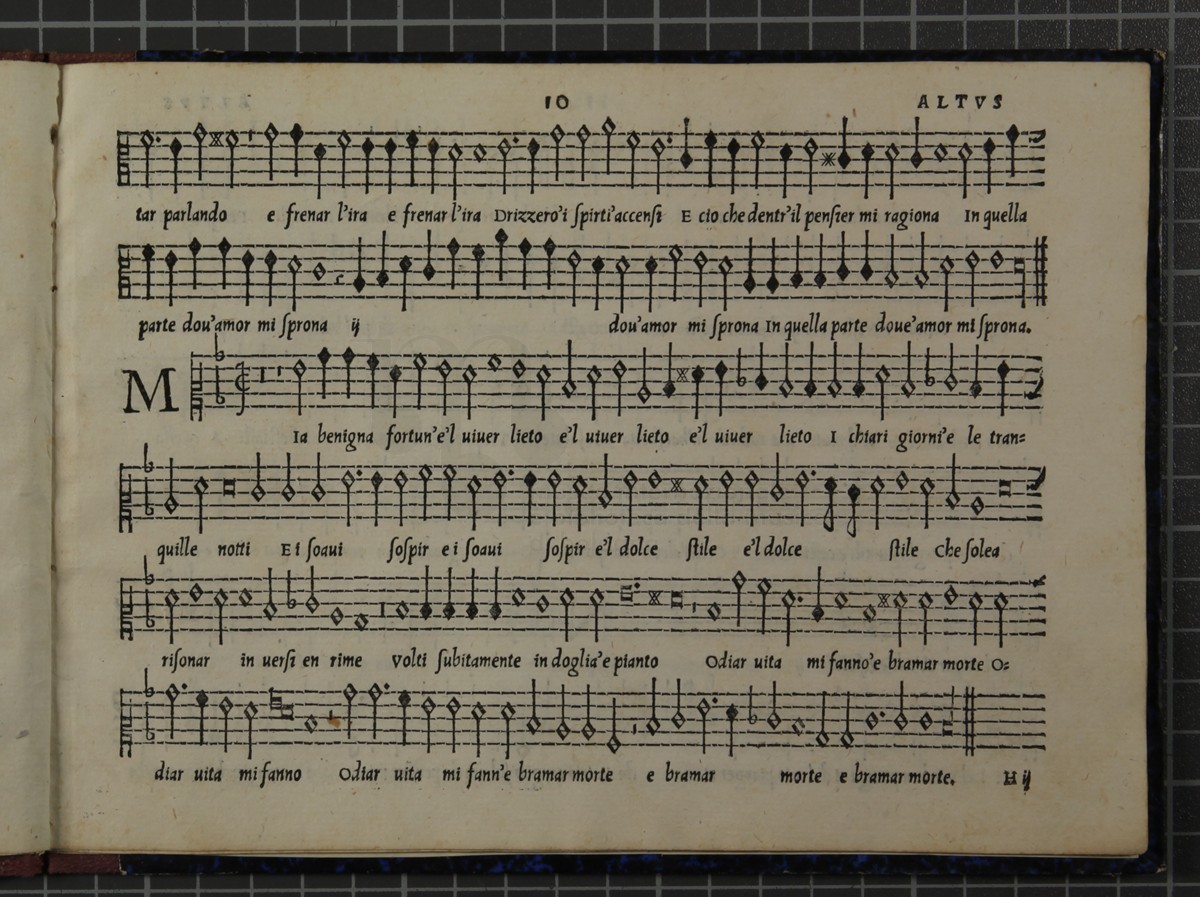 10 ALTVS
tar parlando e frenar l'ira e frenar l'ira Drizzero'i ſpirti'accenſi E cio che dentr'il penſier mi ragiona In quella
parte dou'amor mi ſprona ij dou'amor mi ſprona In quella parte doue'amor mi ſprona.
M
Ia benigna fortun'e'l uiuer lieto e'l uiuer lieto e'l uiuer lieto I chiari giorni'e le tran=
quille notti E i ſoaui ſoſpir e i ſoaui ſoſpir e'l dolce ſtile e'l dolce ſtile Che ſolea
riſonar in uerſi en rime Volti ſubitamente in doglia'e pianto Odiar uita mi fanno'e bramar morte O=
diar uita mi fanno Odiar uita mi fann'e bramar morte e bramar morte e bramar morte. H ij